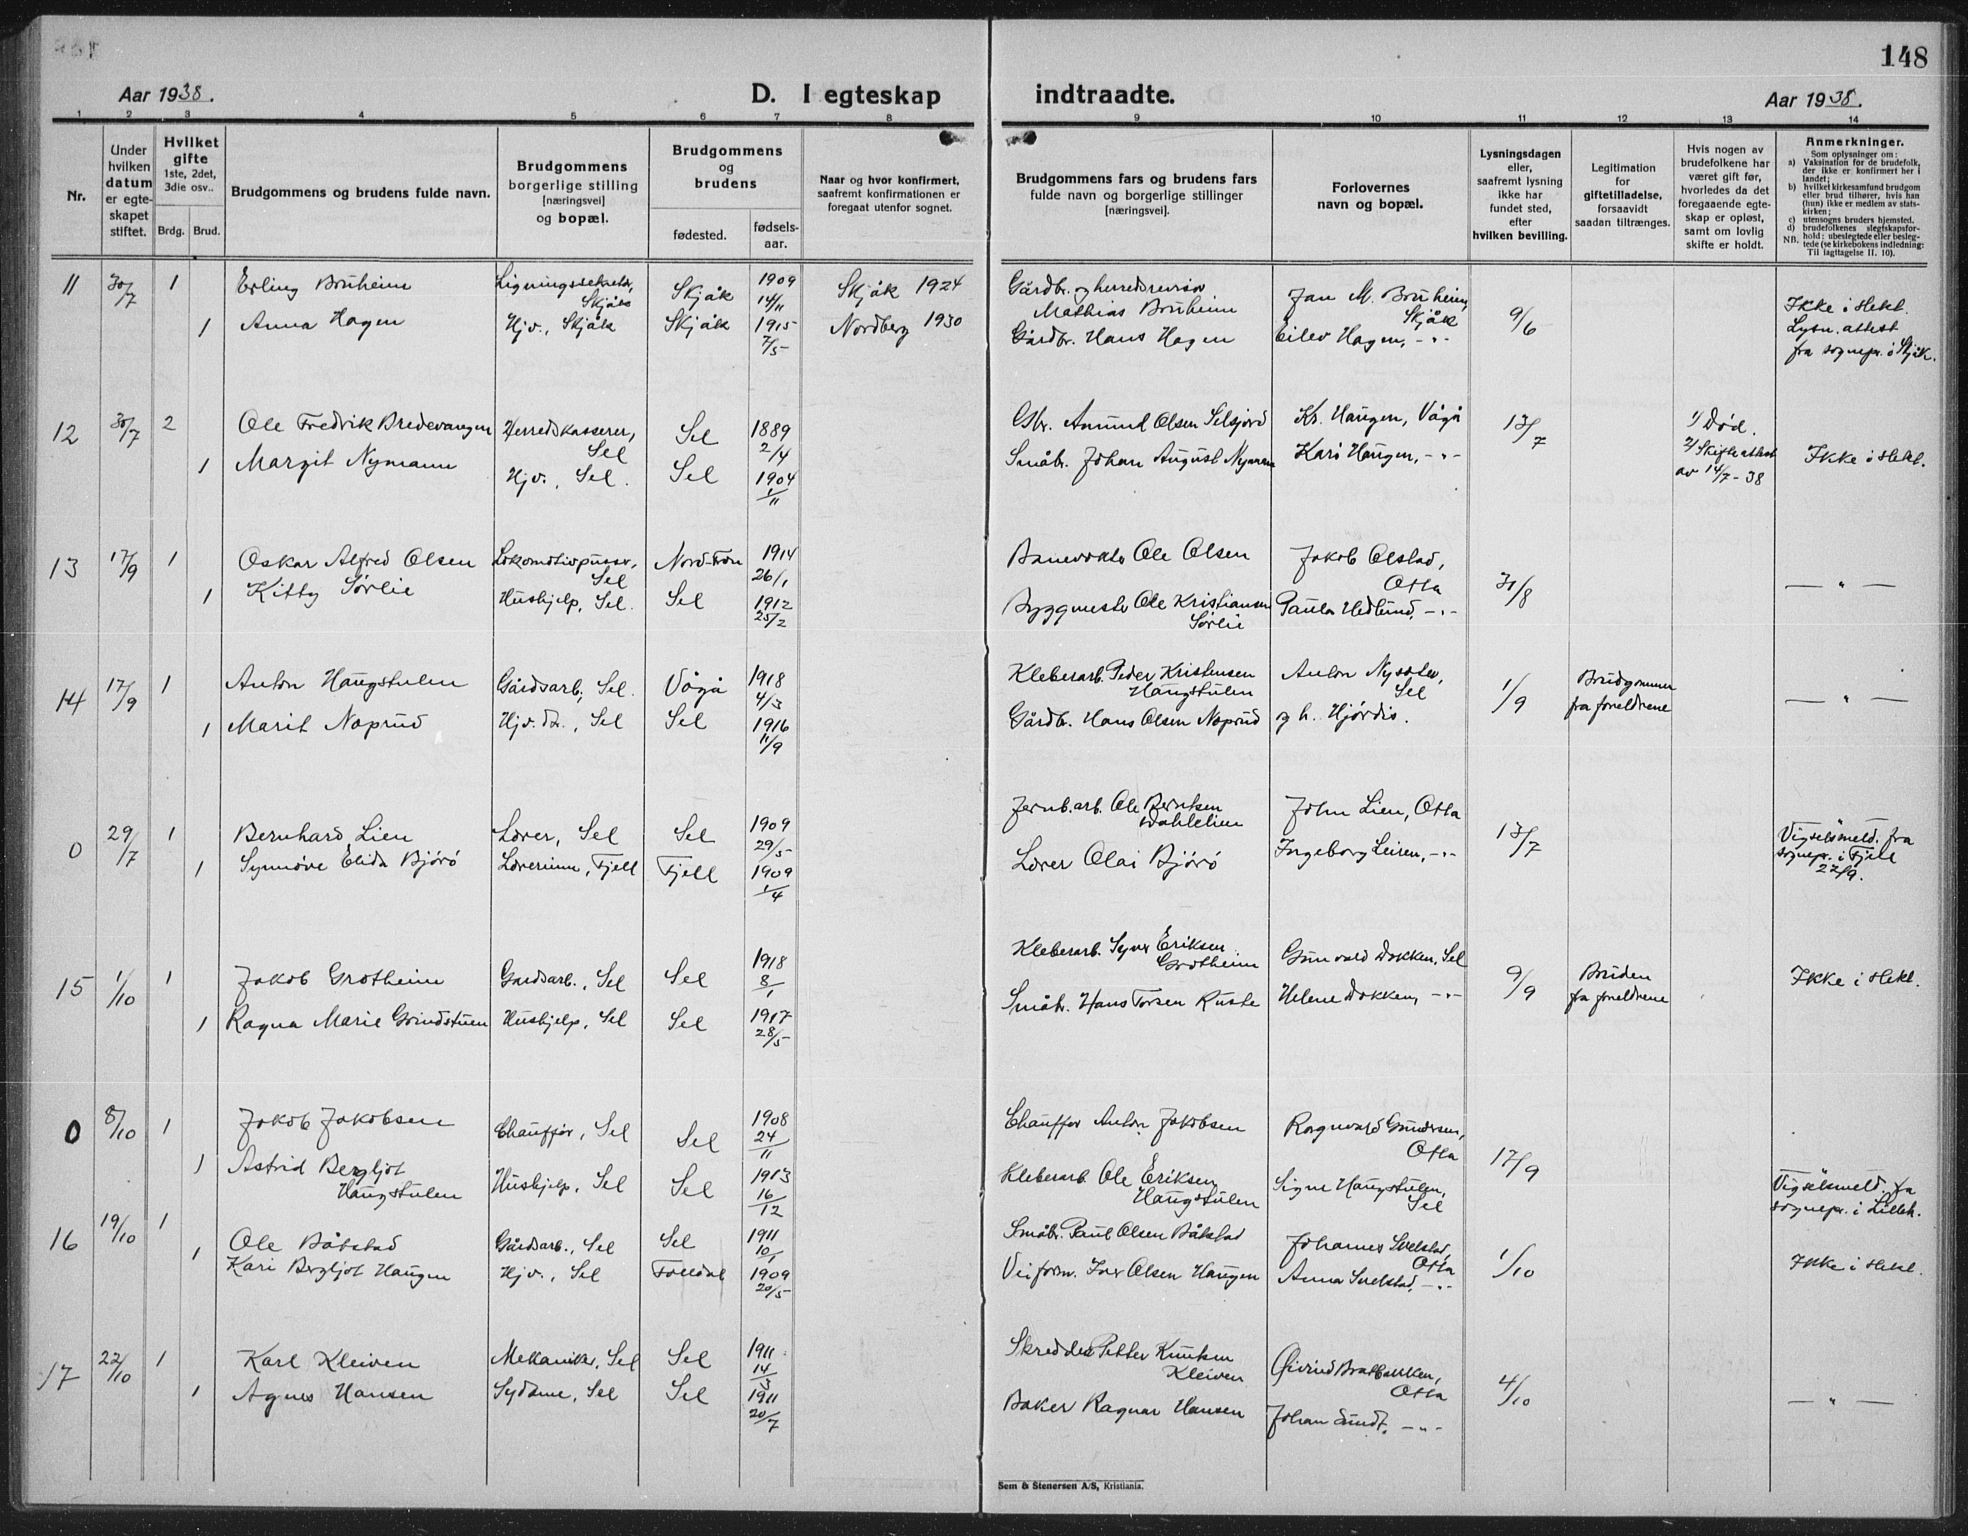 148
Aar 1938.
D. I egteskap indtraadte.
Aar 1938.
1 2 3 4 5 6 7 8 9 10 11 12 13 14
Nr.
Under hvilken datum er egte-skapet stiftet.
Hvilket gifte 1ste, 2det, 3die osv..
Brdg. Brud.
Brudgommens og brudens fulde navn.
Brudgommens borgerlige stilling [næringsvei] og bopæl.
Brudgommens og brudens
fødested.
fødsels-aar.
Naar og hvor konfirmert, saafremt konfirmationen er foregaat utenfor sognet.
Brudgommens fars og brudens fars fulde navn og borgerlige stillinger [næringsvei].
Forlovernes navn og bopæl.
Lysningsdagen eller, saafremt lysning ikke har fundet sted, efter hvilken bevilling.
Legitimation for giftetilladelse, forsaavidt saadan tiltrænges.
Hvis nogen av brudefolkene har været gift før, hvorledes da det foregaaende egte-skap er opløst, samt om lovlig skifte er holdt.
Anmerkninger.
Som oplysninger om:
a) Vaksination for de brudefolk, der ikke er konfirmert her i landet;
b) hvilket kirkesamfund brudgom eller brud tilhører, hvis han (hun) ikke er medlem av stats-kirken;
c) utensogns bruders hjemsted.
d) brudefolkenes slegtskapsfor-hold: ubeslegtede eller besleg-tede (se kirkebokens indledning:
NB. Til iagttagelse II. 10).
11 30/7 1 Erling Bruheim Ligningssekretær, Skjåk Skjåk 1909 14/11 Skjåk 1924 Gårdbr. og herredsrevisor Mathias Bruheim Jan M. Bruheim, Skjåk 9/6 Ikke i slekt. Lysn. attest fra sognepr. i Skjåk.
1 Anna Hagen Hjv., Skjåk Skjåk 1915 7/5 Nordberg 1930 Gårdbr. Hans Hagen Eilev Hagen, -"-
12 30/7 2 Ole Fredrik Bredevangen Herredskasserer, Sel Sel 1889 2/4 Gbr. Amund Olsen Selsjord Kr. Haugen, Vågå 13/7 1/ Død. 2/ Skifteattest av 14/7-38 Ikke i slekt.
1 Margit Nymann Hjv., Sel. Sel 1904 1/11 Småbr. Johan August Nymann Kari Haugen, -"-
13 17/9 1 Oskar Alfred Olsen Lokomotivpusser, Sel Nord-Fron 1914 26/1 Banevokter Ole Olsen Jakob Olstad, Otta 31/8 — " —
1 Kitty Sørlie Hushjelp, Sel. Sel 1912 25/2 Byggmester Ole Kristiansen Sørlie Paula Hedlund, -"-
14 17/9 1 Anton Haugstulen Gårdsarb., Sel. Vågå 1918 4/3 Kleberarb. Peder Kristensen Haugstulen Anton Nysæter, Sel 1/9 Brudgommen fra foreldrene — " —
1 Marit Noprud Hjv. dt., Sel Sel 1916 11/9 Gårdbr. Hans Olsen Noprud og h. Hjørdis.
0 29/7 1 Bernhard Lien Lærer, Sel Sel 1909 29/5 Jernb.arb. Ole Berntsen Dahlelien John Lien, Otta 13/7 Vigselsmeld. fra sognepr. i Fjell 27/9.
1 Synnøve Elida Bjorø Lærerinne, Fjell Fjell 1909 1/4 Lærer Olai Bjorø Ingeborg Leiren, -"-
15 1/10 1 Jakob Grotheim Gardsarb., Sel Sel 1918 8/1 Kleberarb. Syver Eriksen Grotheim Gunvald Dokken, Sel 9/9 Bruden fra foreldrene Ikke i slekt.
1 Ragna Marie Grindstuen Hushjelp, Sel Sel 1917 28/5 Småbr. Hans Torsen Ruste Helene Dokken, -"-
0 8/10 1 Jakob Jakobsen Chauffør, Sel Sel 1908 24/11 Chauffør Anton Jakobsen Ragnvald Gundersen, Otta 17/9
1 Astrid Bergljot Haugstulen Hushjelp, Sel Sel 1913 16/12 Kleberarb. Ole Eriksen Haugstulen Signe Haugstulen, Sel Vigselsmeld. fra sognepr. i Lilleh.
16 19/10 1 Ole Båtstad Gårdsarb., Sel Sel 1911 10/1 Småbr. Paul Olsen Båtstad Johannes Svelstad, Otta 1/10 Ikke i slekt.
1 Kari Bergljot Haugen Hjv., Sel Folldal 1909 20/5 Veiform. Ivar Olsen Haugen Anna Svelstad, -"-
17 22/10 1 Karl Kleiven Mekaniker, Sel Sel 1911 14/3 Skredder Petter Knutsen Kleiven Øivind Bratbakken, Otta 4/10 — " —
1 Agnes Hansen Sydame, Sel Sel 1911 20/7 Baker Ragnar Hansen Johan Sundt, -"-
Sem & Stenersen A/S, Kristiania.